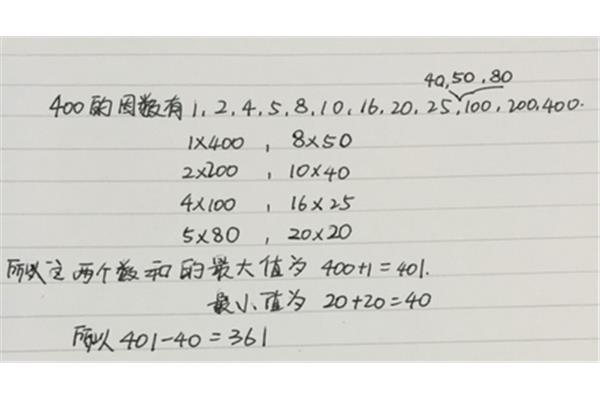 40,50,80
400的因数有1,2,4,5,8,10,16,20,25,100,200,400.
1×400,8×50
2×200,10×40
4×100,16×25
5×80,20×20
所以这两个数和的最大值为 400+1=401.
最小值为 20+20=40
所以401-40=361